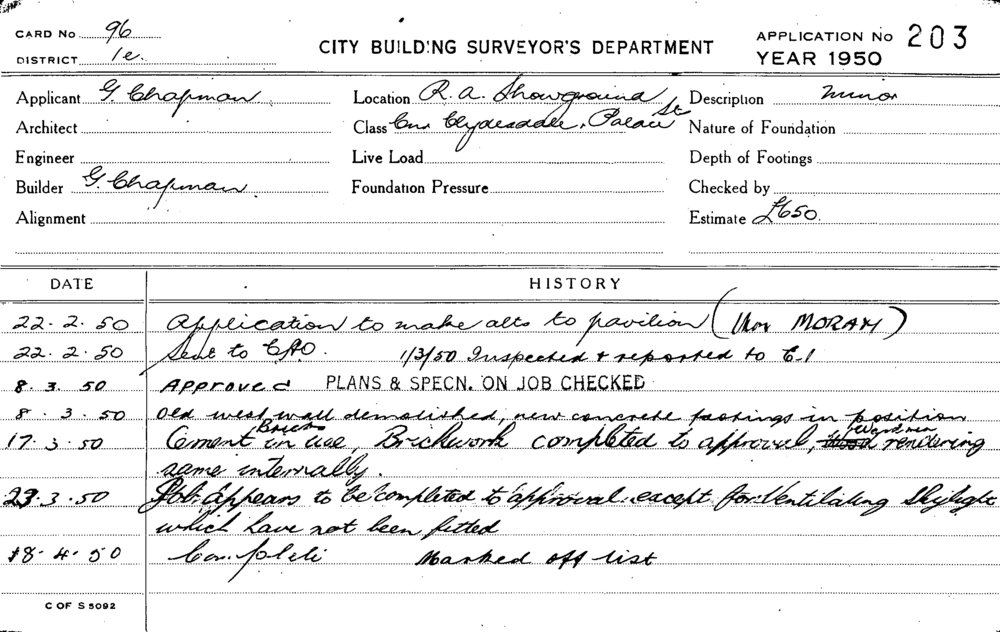 CARD No 96
DISTRICT 1e.
CITY BUILDING SURVEYOR'S DEPARTMENT
APPLICATION No 203
YEAR 1950
Applicant G. Chapman
Location R. A. Showground
Description minor
Architect
Class Cnr Clydesdale, Palace St
Nature of Foundation
Engineer
Live Load
Depth of Footings
Builder G. Chapman
Foundation Pressure
Checked by
Alignment
Estimate £650.
DATE HISTORY
22. 2. 50 Application to make alts to pavilion ( MORAN)
22. 2. 50 Sent to 1/3/50 Inspected & reported to
8. 3. 50 Approved PLANS & SPECN. ON JOB CHECKED
8. 3. 50 Old west wall demolished, new concrete footings in position
17. 3. 50 Cement Bricks in use, Brickwork completed to approval, rendering
same internally.
23. 3. 50 Job appears to be completed to approval except for Ventilating Skylight
which have not been fitted
18. 4. 50 Complete Marked off list
C OF S 5092